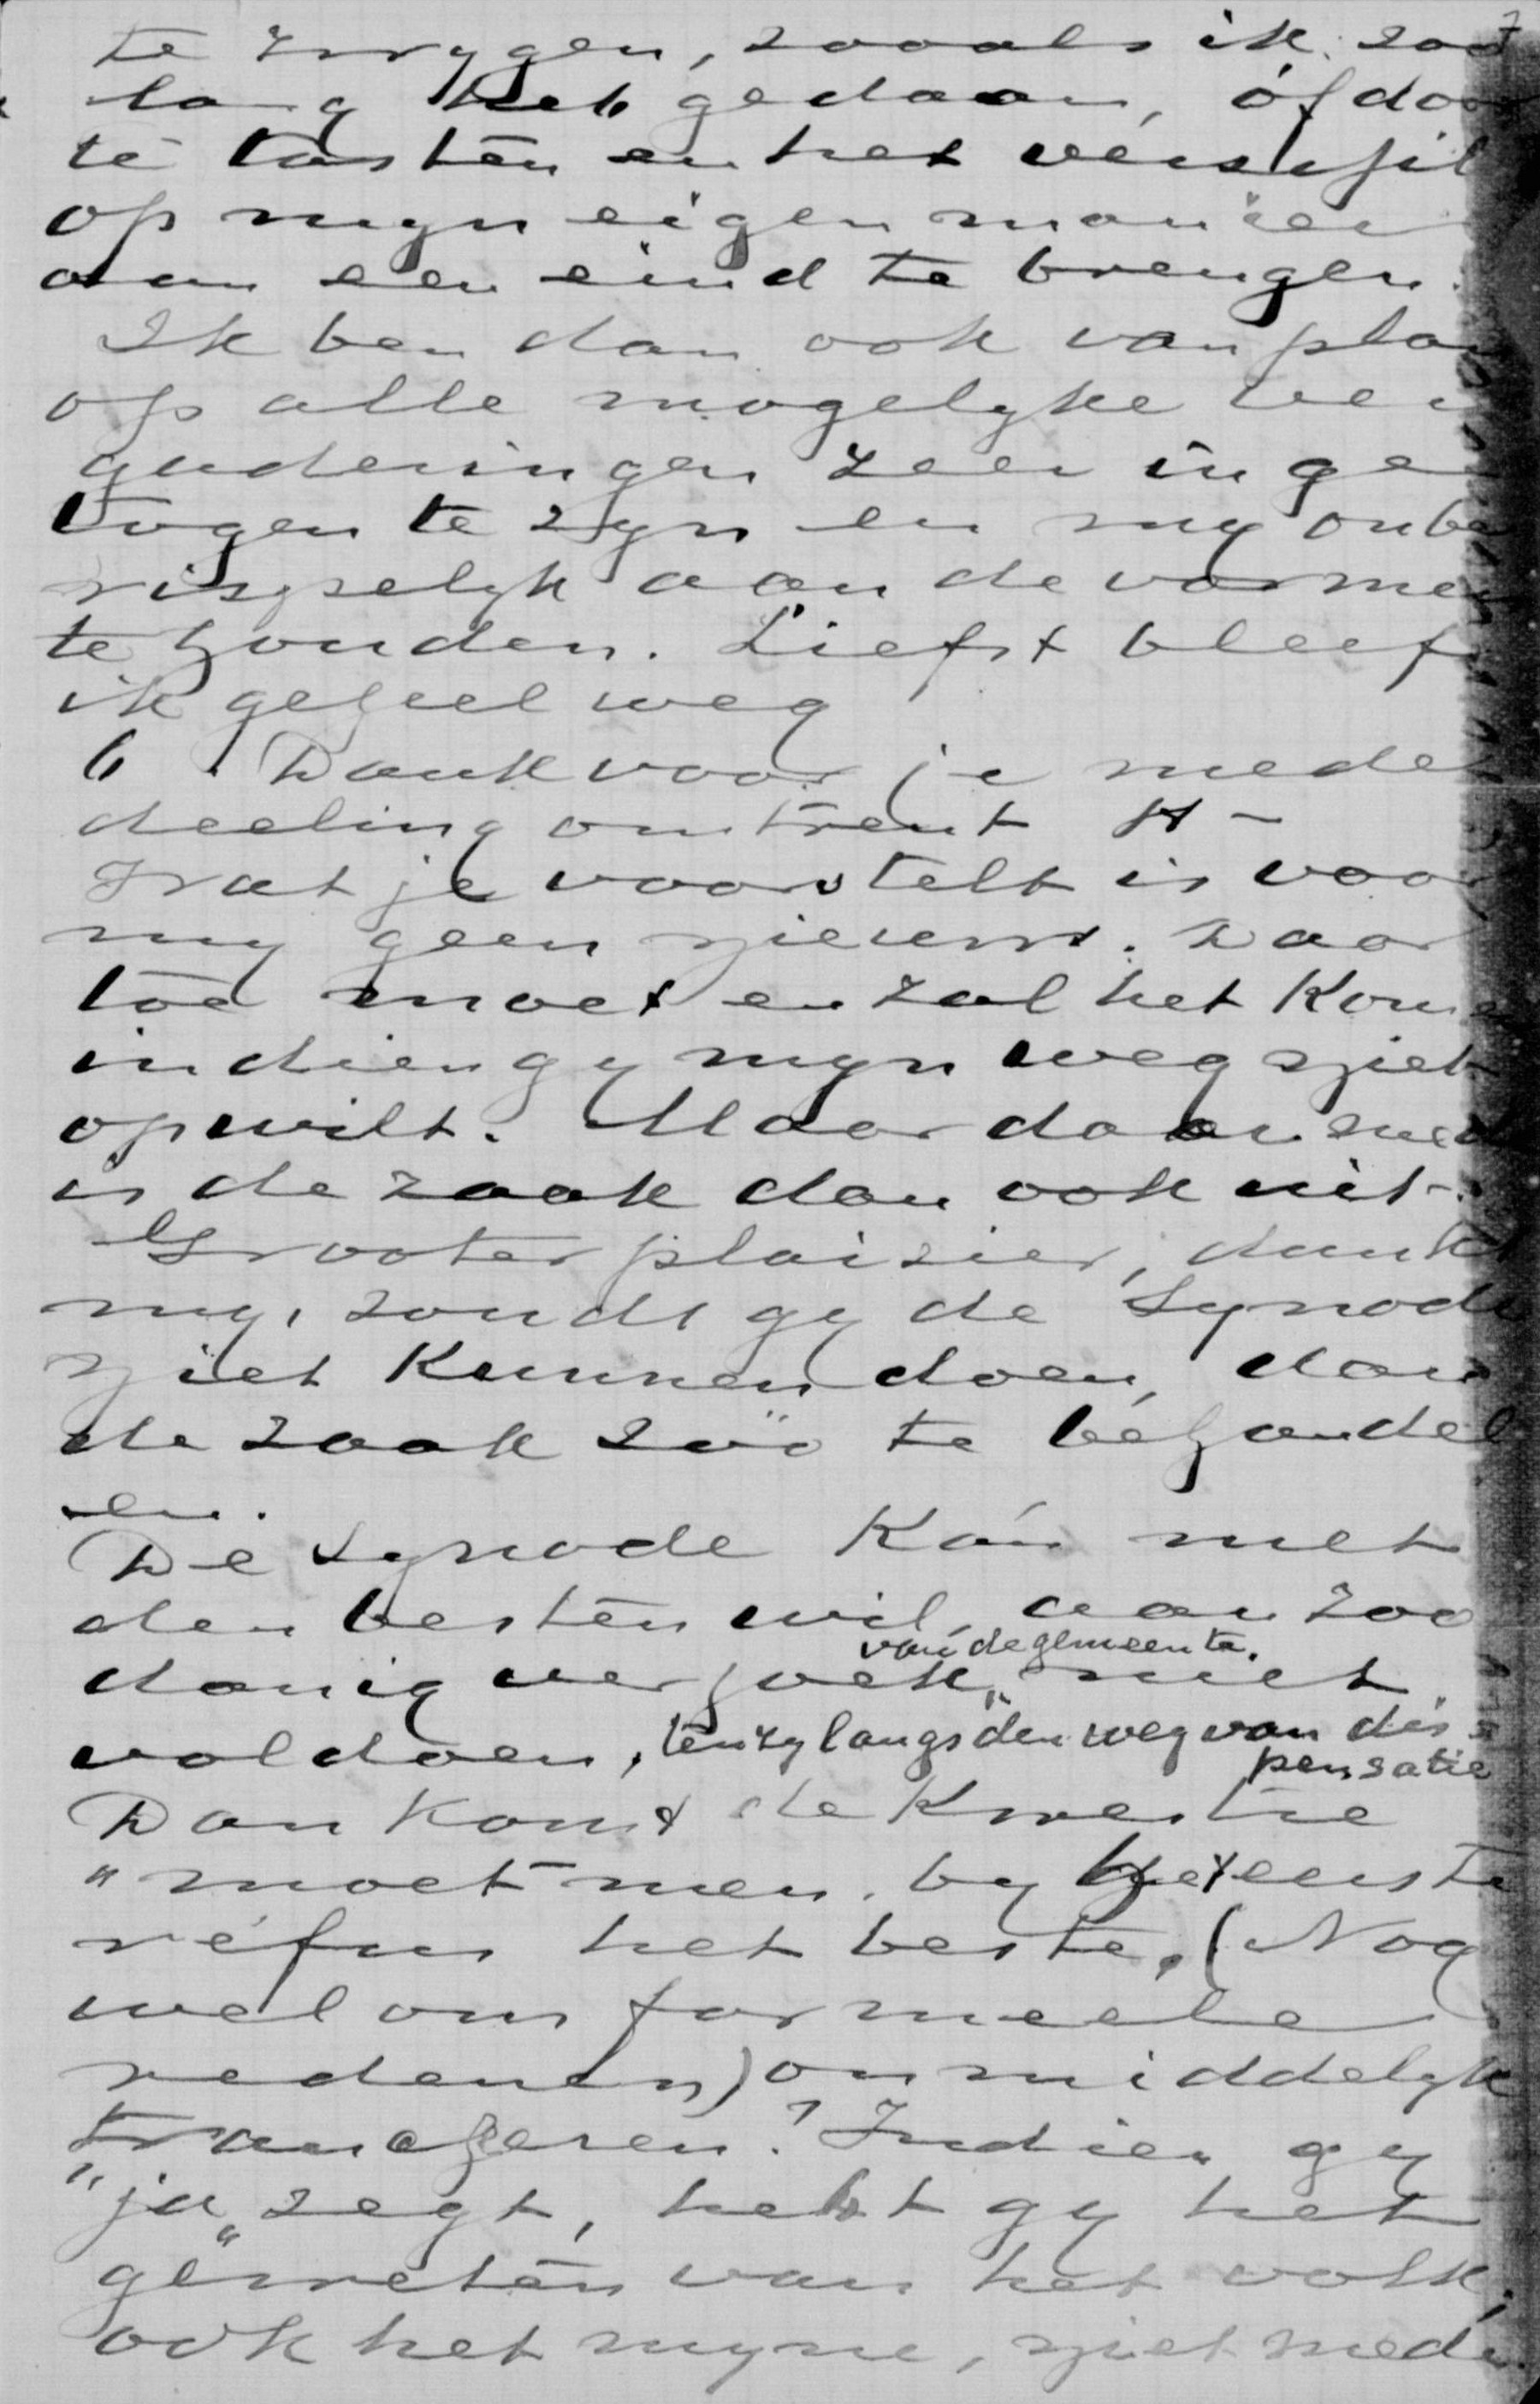 te zwygen, zooals ik zoo
lang heb gedaan, óf door
te tasten en het verschil
op myn eigen manier
aan een eind te brengen.
Ik ben dan ook van plan
op alle mogelyke ver
gaderingen zeer inge
togen te zyn en my onbe
rispelyk aan de vormen
te houden. Liefst bleef
ik geheel weg
6. Dank voor je mede
deeling omtrent H -
Wat je voorstelt is voor
my geen nieuws. Daar
toe moet en zal het komen
indien gy myn weg niet
op wilt. Maar daarmede
is de zaak dan ook uit.
Grooter plaizier, dunkt
my, zoudt gy de Synode
niet kunnen doen, dan
de zaak zóó te behandel
en.
De Synode kán met
den besten wil, aan zoo
danig verzoek van de gemeente niet
voldoen, tenzy langs den weg van dis
pensatie
Dan komt de kwestie
"moet men, by het eerste
refus het beste, (Nog
wel om formeele
redenen) onmiddelyk
trancheren? Indien gy
"ja" zegt, hebt gy het
geweten van het volk,
ook het myne, niet mede.